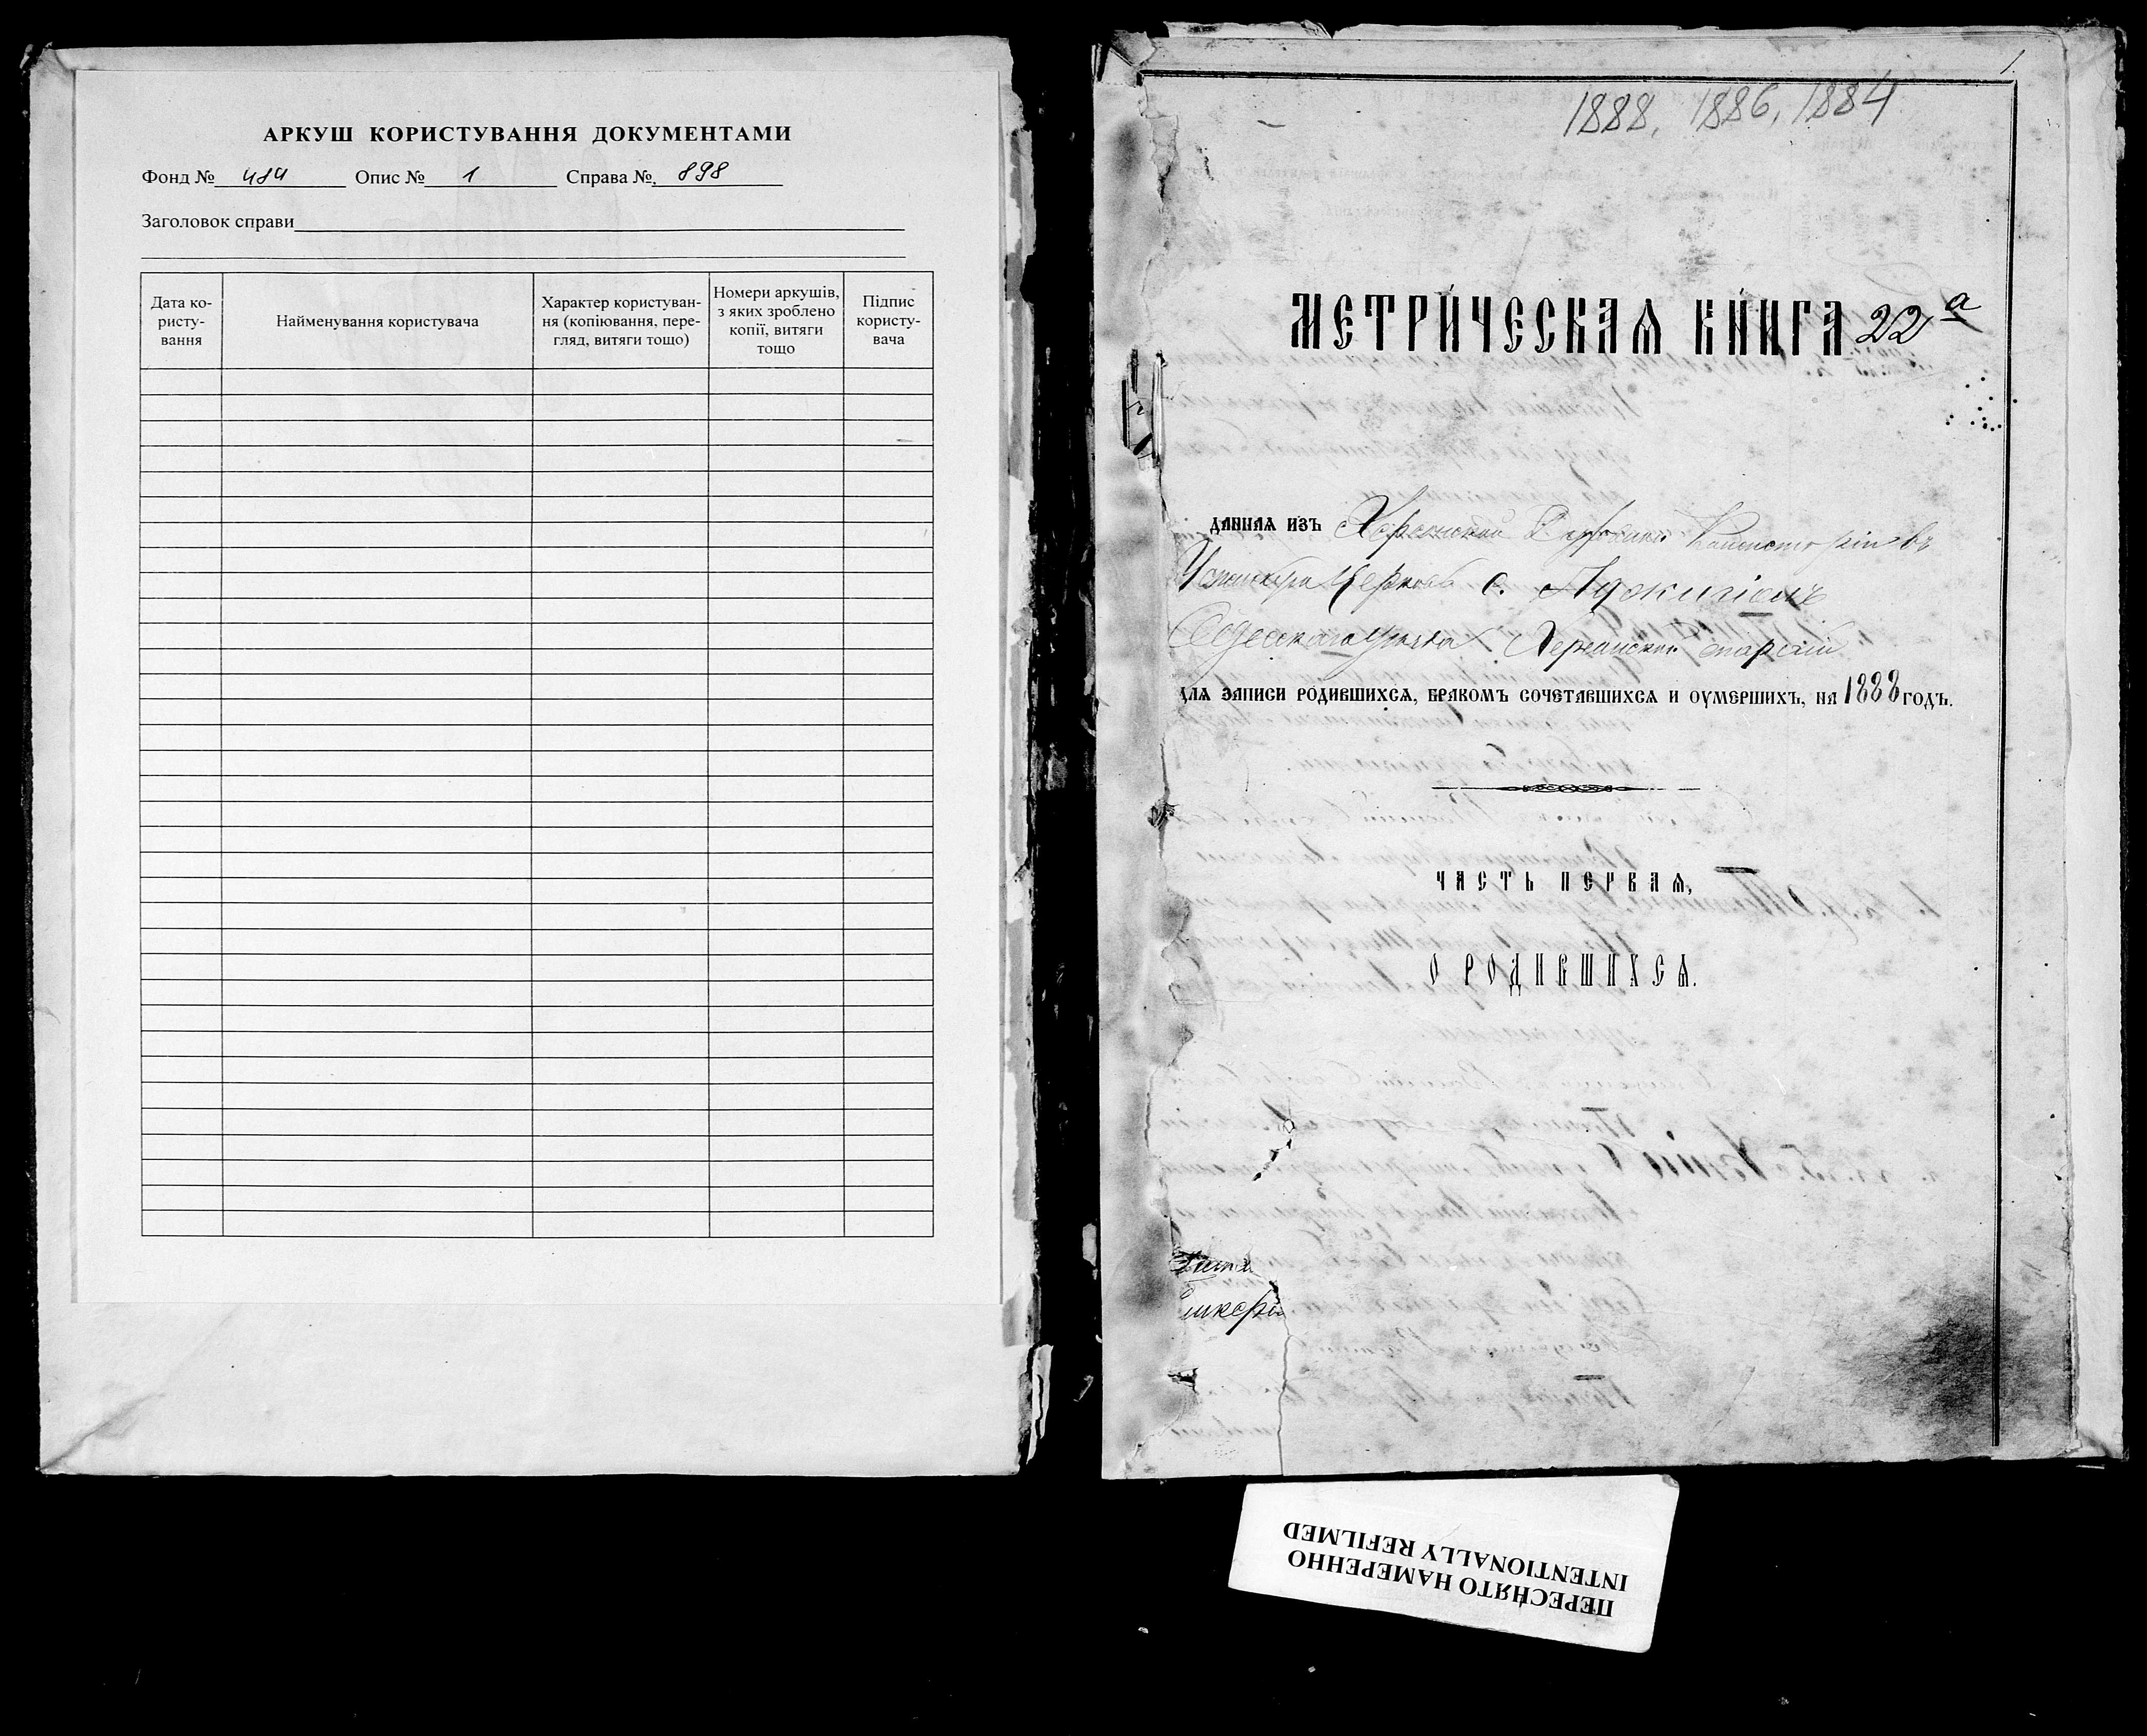 АРКУШ КОРИСТУВАННЯ ДОКУМЕНТАМИ
Фонд № 484 Опис № 1 Справа № 898
Заголовок справи
Дата ко-
ристу-
вання
Найменування користувача
Характер користуван-
ня (копіювання, пере-
гляд, витяги тощо)
Номери аркушів,
з яких зроблено
копії, витяги
тощо
Підпис
користу-
вача
1.
1888, 1886, 1884
МЕТРИ́ЧЕСКАѦ КНИ́ГА 22 а
ДАННАѦ ИЗЪ Херсонской Духовной Консисторіи въ
Успенскую Церковь с.
Одесскаго уѣзда Херсонской епархіи
ДЛѦ ЗАПИСИ РОДИВШИХСѦ, БРАКОМЪ СОЧЕТАВШИХСѦ И ОУМЕРШИХЪ, НА 1888 ГОДЪ.
ЧАСТЬ ПЕРВАѦ,
О РОДИВШИХСѦ.
ПЕРЕСНЯТО НАМЕРЕННО
INTENTIONALLY REFILMED